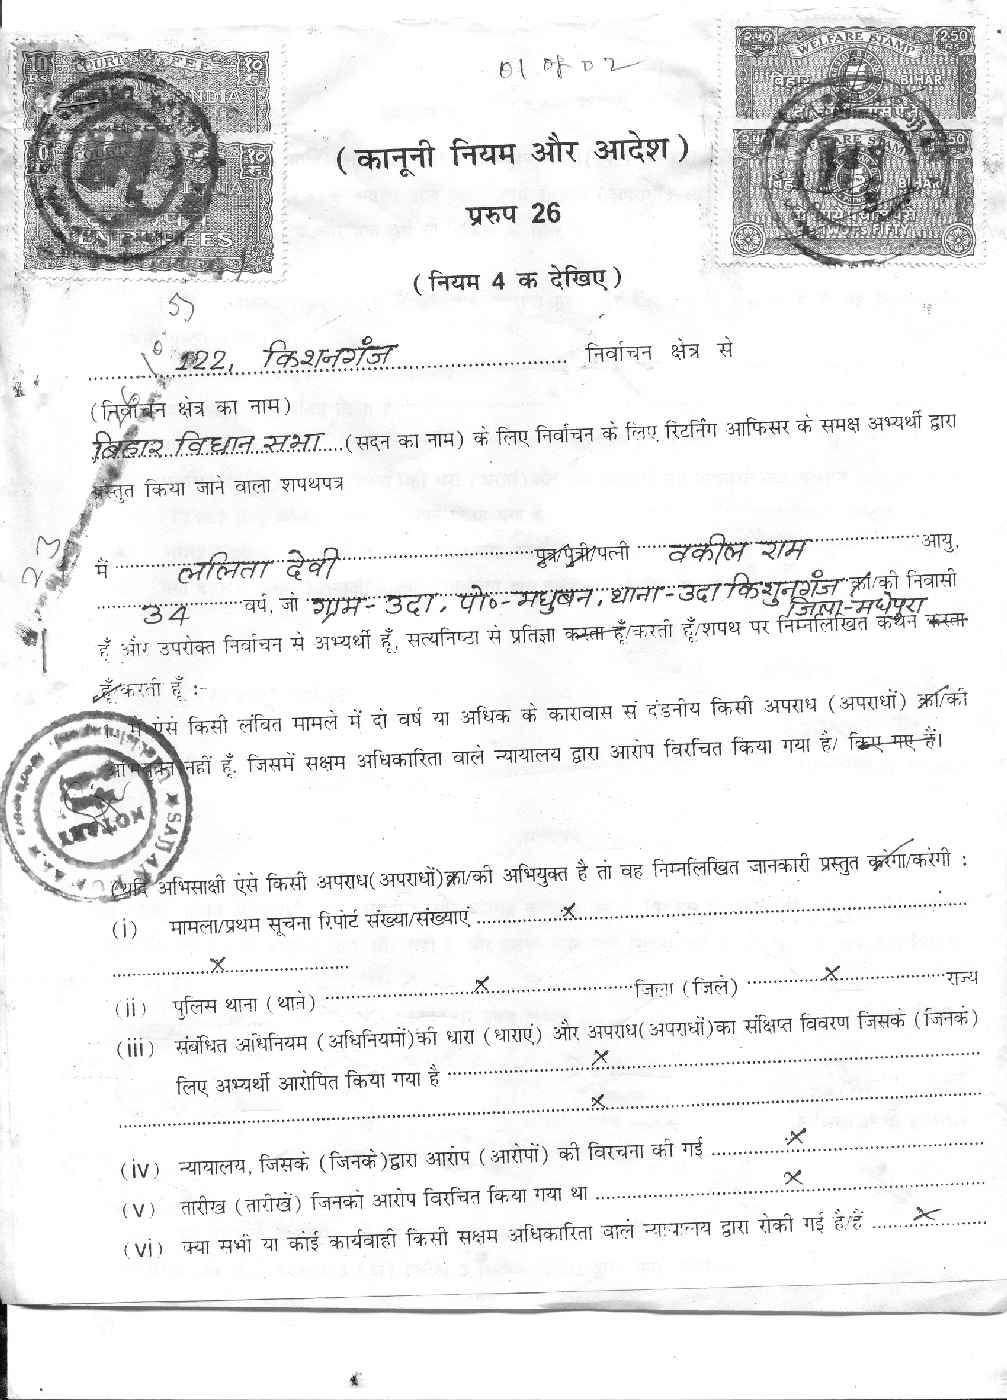 01 of 02
COURT FEE
INDIA
WELFARE STAMP
2.50
बिहार BIHAR
( कानूनी नियम और आदेश )
प्ररुप 26
( नियम 4 क देखिए )
122, किशनगंज निर्वाचन क्षेत्र से
(निर्वाचन क्षेत्र का नाम)
बिहार विधान सभा (सदन का नाम) के लिए निर्वाचन के लिए रिटर्निंग आफिसर के समक्ष अभ्यर्थी द्वारा
प्रस्तुत किया जाने वाला शपथपत्र
मैं ललिता देवी पुत्र/पुत्री/पत्नी वकील राम आयु,
34 वर्ष, जो ग्राम- उदा, पो०- मधुबन, थाना- उदा किशुनगंज का/की निवासी
जिला-मधेपुरा
हूँ और उपरोक्त निर्वाचन से अभ्यर्थी हूँ, सत्यनिष्टा से प्रतिज्ञा करता हूँ/करती हूँ/शपथ पर निम्नलिखित कथन करता
हूँ/करती हूँ :-
मैं ऐसे किसी लंवित मामले में दो वर्ष या अधिक के कारावास सं दंडनीय किसी अपराध (अपराधों) का/की
अभियुक्त नहीं हूँ. जिसमें सक्षम अधिकारिता वाले न्यायालय द्वारा आरोप विरचित किया गया है/ किए गए हैं।
(यदि अभिसाक्षी ऐसे किसी अपराध(अपराधों)का/की अभियुक्त है तो वह निम्नलिखित जानकारी प्रस्तुत करेगा/करेगी :
(i) मामला/प्रथम सूचना रिपोर्ट संख्या/संख्याए x
x
(ii) पुलिस थाना (थाने) x जिला (जिले) x राज्य
(iii) संबंधित अधिनियम (अधिनियमों)की धारा (धाराएं) और अपराध(अपराधों)का संक्षिप्त विवरण जिसके (जिनके)
लिए अभ्यर्थी आरोपित किया गया है x
x
(iv) न्यायालय, जिसके (जिनके)द्वारा आरोप (आरोपों) की विरचना की गई x
(v) तारीख (तारीखें) जिनको आरोप विरचित किया गया था x
(vi) क्या सभी या कोई कार्यवाही किसी सक्षम अधिकारिता वाले न्यायालय द्वारा रोकी गई है/हैं x
NOTARY